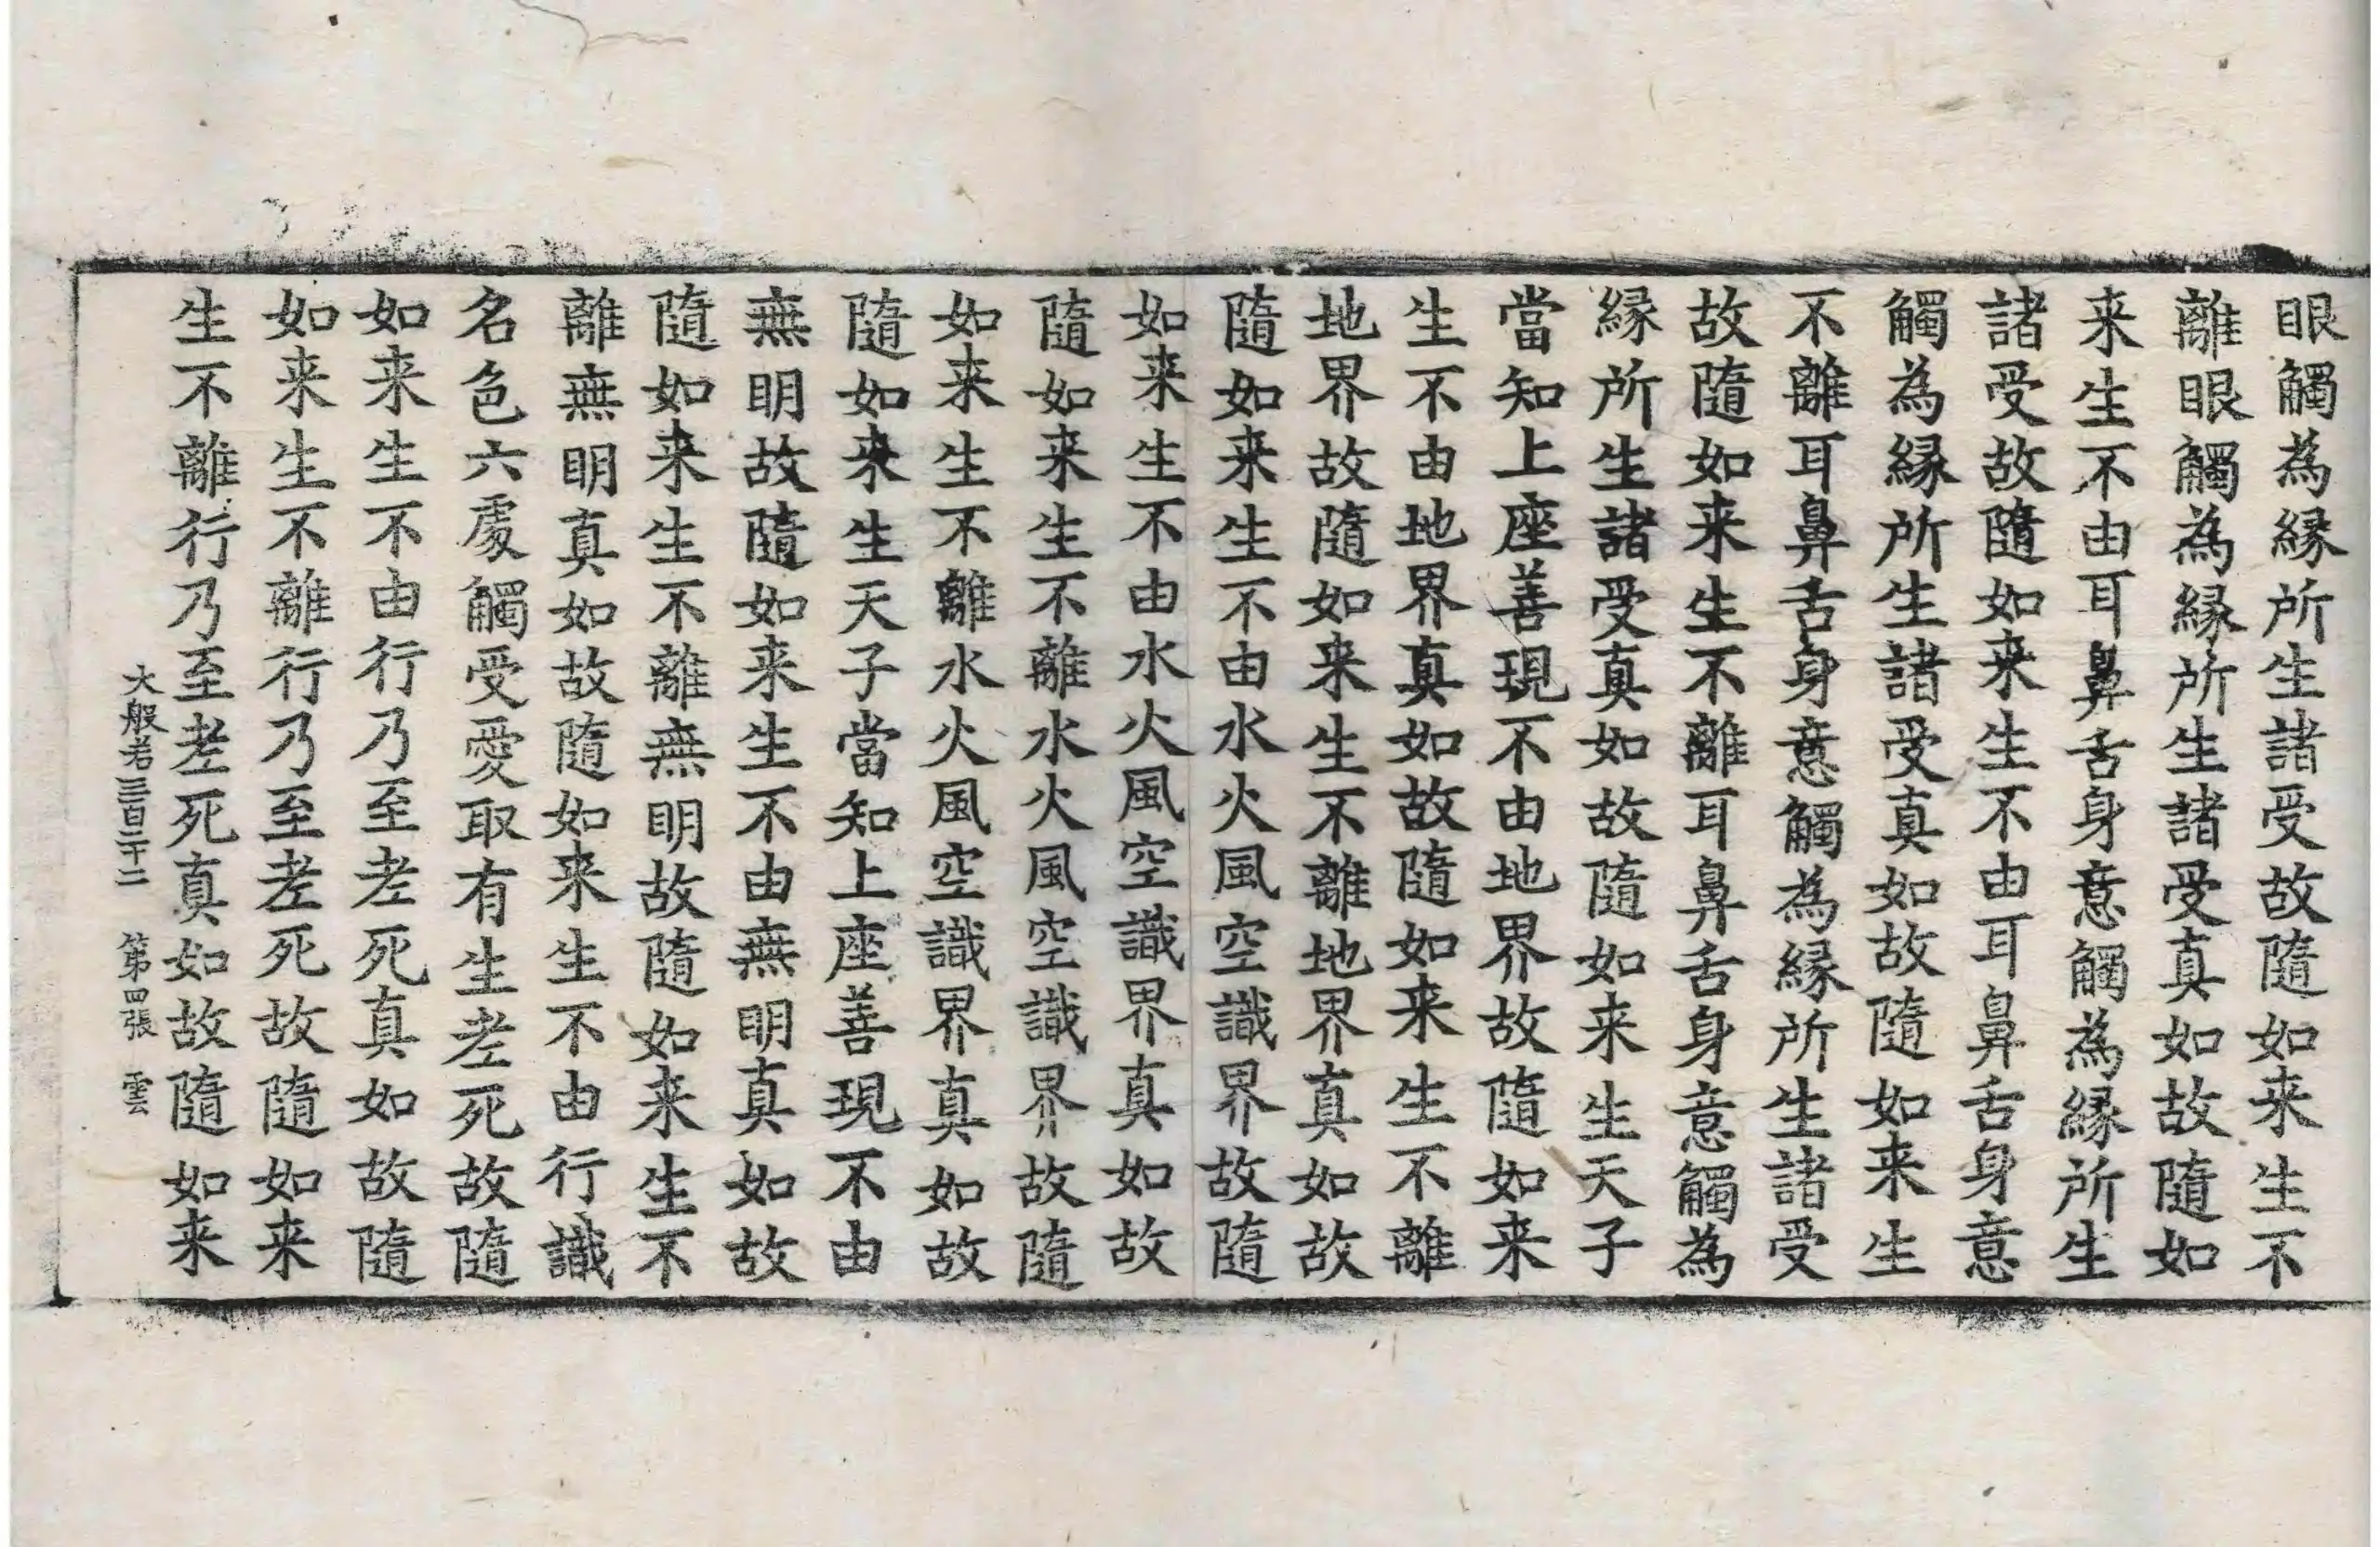 眼觸為縁所生諸受故隨如来生不
離眼觸為縁所生諸受真如故隨如
来生不由耳鼻舌身意觸為縁所生
諸受故隨如来生不由耳鼻舌身意
觸為縁所生諸受真如故隨如来生
不離耳鼻舌身意觸為縁所生諸受
故隨如来生不離耳鼻舌身意觸為
縁所生諸受真如故隨如来生天子
當知上座善現不由地界故隨如来
生不由地界真如故隨如来生不離
地界故隨如来生不離地界真如故
隨如来生不由水火風空識界故隨
如来生不由水火風空識界真如故
隨如来生不離水火風空識界故隨
如来生不離水火風空識界真如故
隨如来生天子當知上座善現不由
無明故隨如来生不由無明真如故
隨如来生不離無明故隨如来生不
離無明真如故隨如来生不由行識
名色六處觸受愛取有生老死故隨
如来生不由行乃至老死真如故隨
如来生不離行乃至老死故隨如来
生不離行乃至老死真如故隨如来
大般若三百二十二 第四張 雲